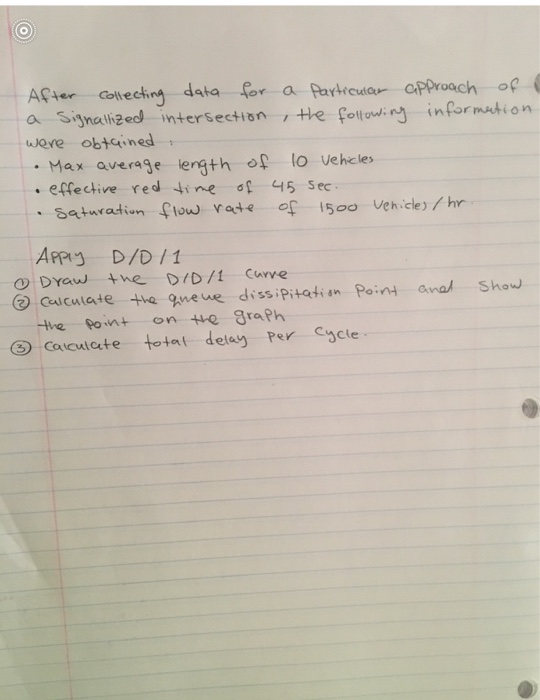 After collecting data for a particular approach of
a Signallized intersection, the following information
were obtained:
• Max average length of 10 vehicles
• effective red time of 45 sec.
• Saturation flow rate of 1500 vehicles/hr.
Apply D/D/1
① Draw the D/D/1 curve
② Calculate the queue dissipitation point and show
the point on the graph
③ Calculate total delay per cycle.